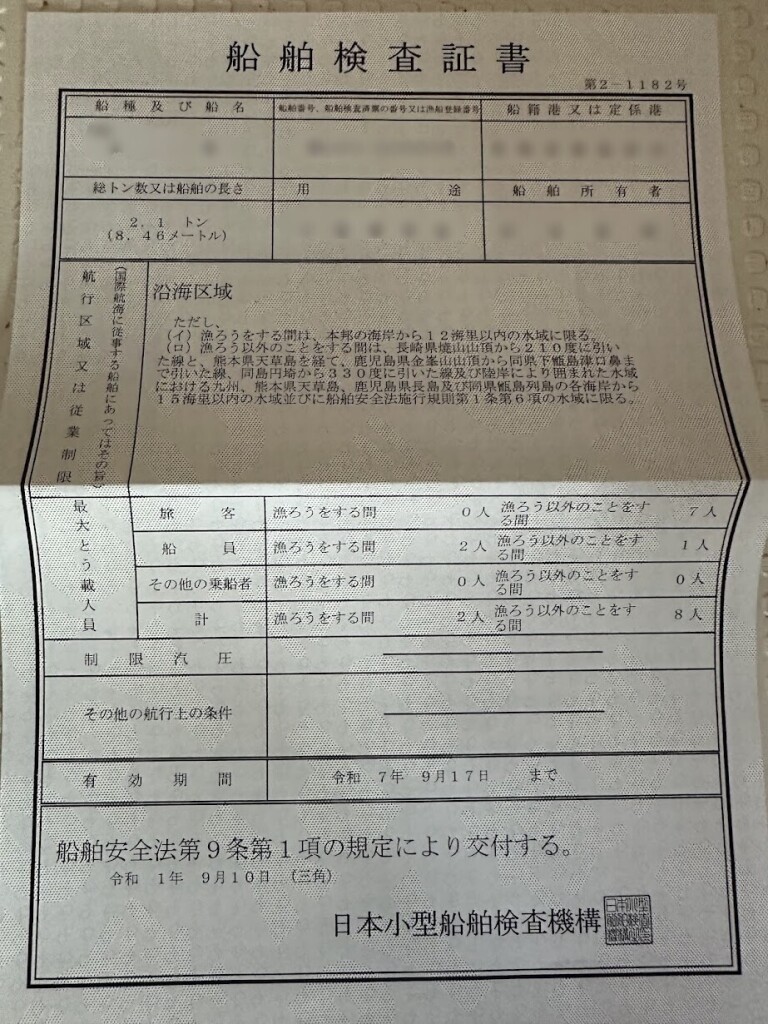 船舶検査証書
第2-1182号
船種及び船名
船舶番号、船舶検査済票の番号又は漁船登録番号
船籍港又は定係港
総トン数又は船舶の長さ
用途
船舶所有者
2.1 トン
(8.46メートル)
航行区域又は従業制限
(国際航海に従事する船舶にあってはその旨)
沿海区域
ただし、
(イ)漁ろうをする間は、本邦の海岸から12海里以内の水域に限る。
(ロ)漁ろう以外のことをする間は、長崎県焼山山頂から210度に引い
た線と、熊本県天草島を経て、鹿児島県金峯山山頂から同県下甑島津口鼻ま
で引いた線、同島円埼から330度に引いた線及び陸岸により囲まれた水域
における九州、熊本県天草島、鹿児島県長島及び同県甑島列島の各海岸から
15海里以内の水域並びに船舶安全法施行規則第1条第6項の水域に限る。
最大とう載人員
旅客 漁ろうをする間 0人 漁ろう以外のことをす
る間 7人
船員 漁ろうをする間 2人 漁ろう以外のことをす
る間 1人
その他の乗船者 漁ろうをする間 0人 漁ろう以外のことをす
る間 0人
計 漁ろうをする間 2人 漁ろう以外のことをす
る間 8人
制限汽圧
その他の航行上の条件
有効期間 令和 7年 9月17日 まで
船舶安全法第9条第1項の規定により交付する。
令和 1年 9月10日 (三角)
日本小型船舶検査機構